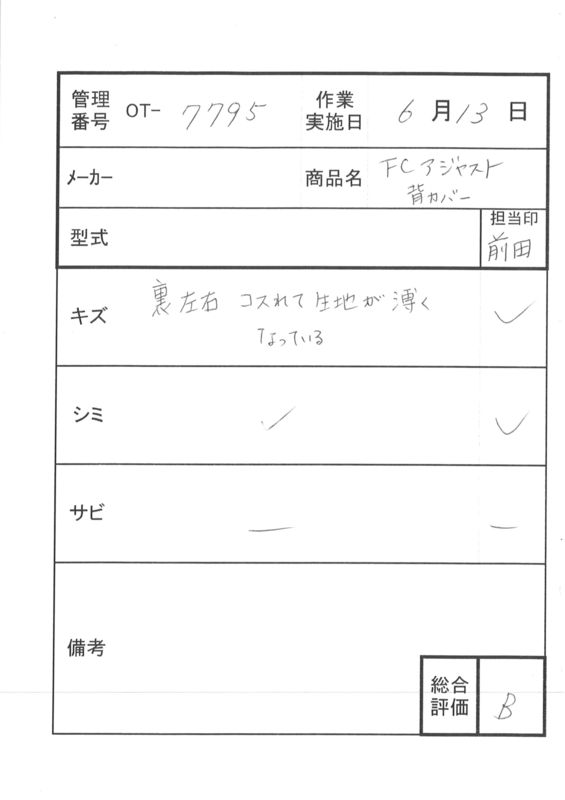 管理番号 OT- 7795 作業実施日 6月13日
メーカー 商品名 FCアジャスト
背カバー
型式 担当印
前田
キズ 裏左右 コスれて生地が薄く
なっている ✓
シミ ✓ ✓
サビ — —
備考
総合
評価 B